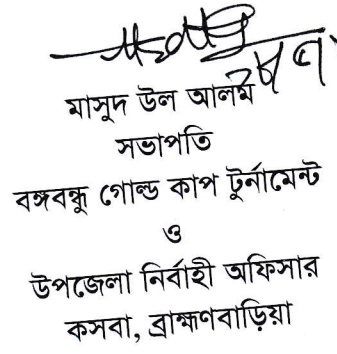 মাসুদ উল আলম
সভাপতি
বঙ্গবন্ধু গোল্ড কাপ টুর্নামেন্ট
ও
উপজেলা নির্বাহী অফিসার
কসবা, ব্রাহ্মণবাড়িয়া